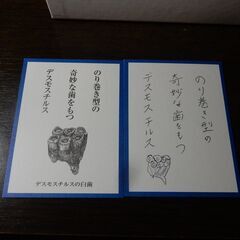 のり巻き型の
奇妙な歯をもつ
デスモスチルス
デスモスチルスの臼歯
のり巻き型の
奇妙な歯をもつ
デスモスチルス